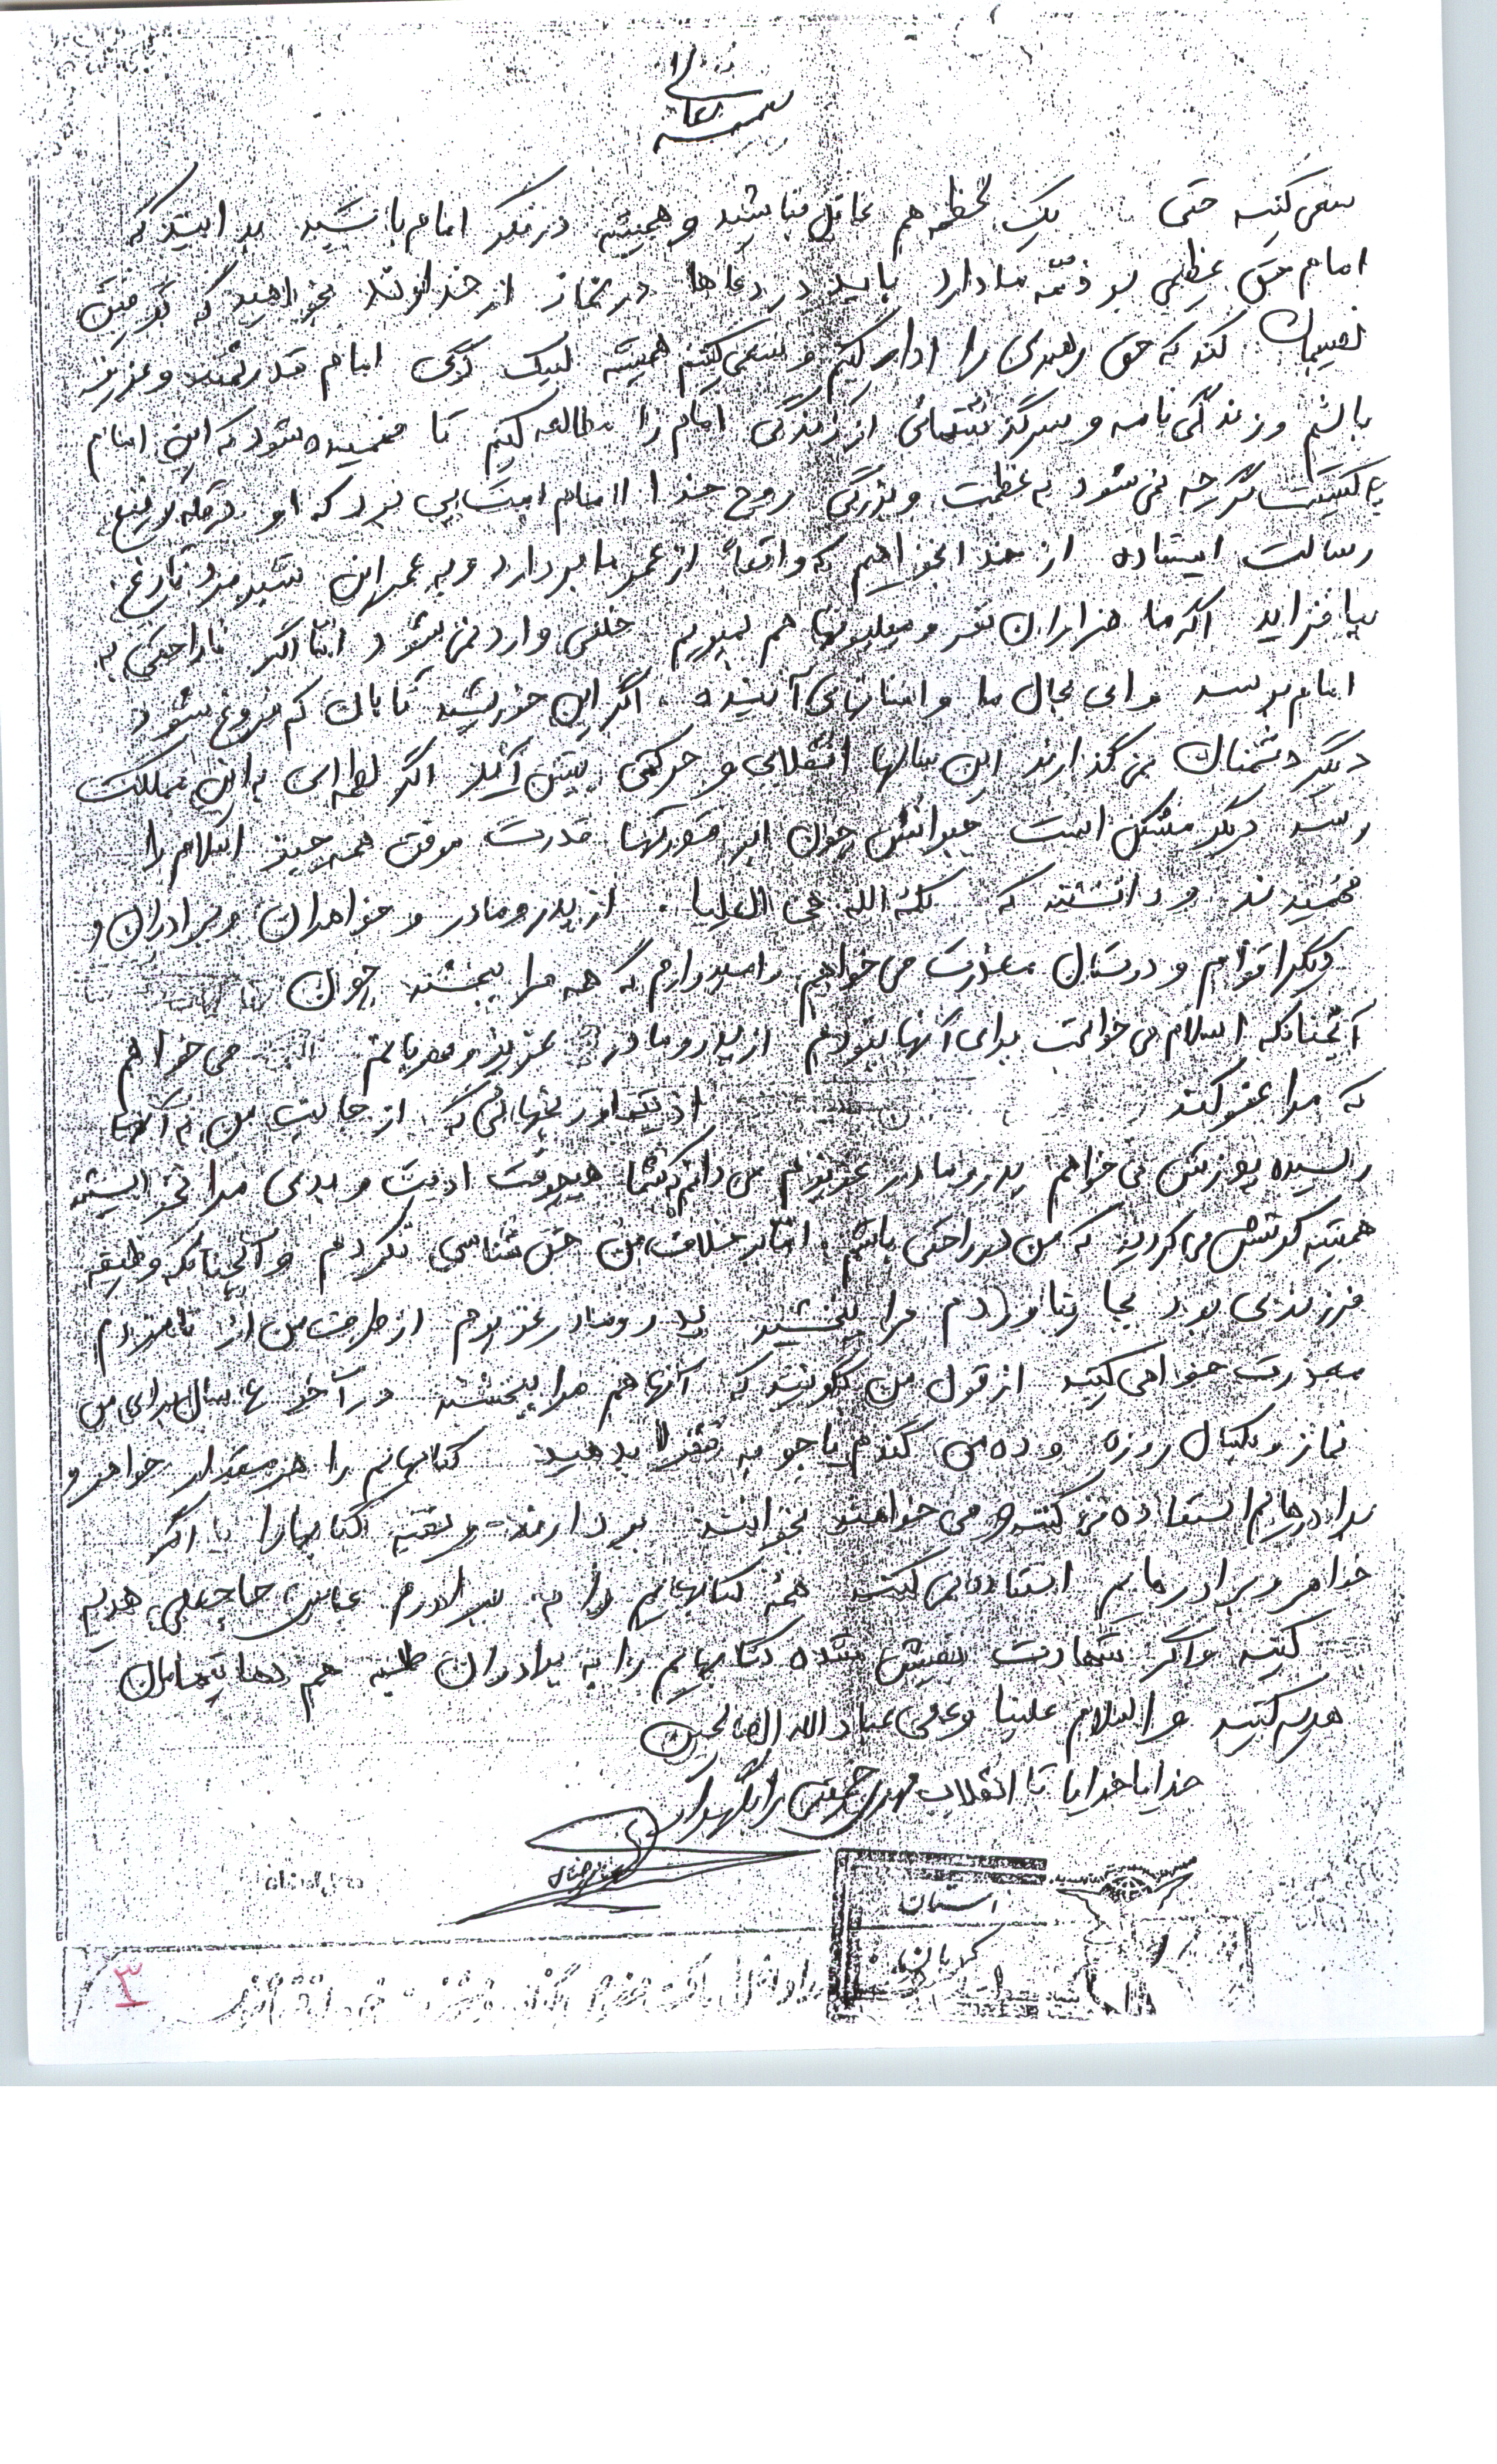 بسمه تعالی
سعی کنید حتی یک لحظه هم غافل نباشید و همیشه در فکر امام باشید بدانید که
امام حق عظیمی بر ذمّه ما دارد باید در دعاها در نماز از خداوند بخواهید که توفیق
نصیبمان کند که حق رهبری را ادا کنیم و سعی کنیم همیشه لبیک گوی امام قدرتمند و عزیز
باشیم و زندگی نامه و سرگذشتهائی از زندگی امام را مطالعه کنیم تا فهمیده شود که این امام
کیست گرچه نمی شود به عظمت و بزرگی روح خدا امام امت پی برد که او در قله رفیع
رسالت ایستاده از خدا بخواهیم که واقعاً از عمر ما بردارد و به عمر این شیرمرد تاریخ
بیافزاید اگر ما هزاران نفر و میلیونها هم بمیریم خللی وارد نمی شود اما اگر ناراحتی به
امام برسد وای بحال ما و انسانهای آینده . اگر این خورشید تابان کم فروغ شود
دیگر دشمنان نمی گذارند این سالها انقلابی و حرکتی پیش آید اگر لطمه ای به این مملکت
رسد دیگر مشکل است جبرانش چون ابر قدرتها قدرت همه چیز اسلام را
فهمیدند و دانستند که کلمة الله هی العلیا . از پدر و مادر و خواهران و برادران و
دیگر اقوام و دوستان معذرت می خواهم و امیدوارم که همه مرا ببخشند چون
آنچنانکه اسلام می خواست برای آنها نبودم از پدر و مادر عزیز و مهربانم می خواهم
که مرا عفو کنند از رنجهائی که از جانب من به آنها
رسیده پوزش می خواهم پدر و مادر عزیزم می دانم که شما هیچوقت اذیت و بدی مرا نمی خواستید
همیشه کوشش می کردید که من در راحتی باشم . اما بر خلاف من حق شناسی نکردم و آنچنانکه وظیفه
فرزندی بود بجا نیاوردم مرا ببخشید پدر و مادر عزیزم از طرف من از نامزدم
معذرت خواهی کنید از قول من بگوئید که آنها هم مرا ببخشند در آخر سال برای من
نماز و یکسال روزه و ده من گندم یا جو به فقرا بدهید کتابهایم را هر مقدار خواهر و
برادرهایم استفاده می کنند و می خواهند بخوانند بردارند و بقیه کتابها را یا اگر
خواهر و برادرهایم استفاده نمی کنند همه کتابهایم را به برادرم عباس حاجعلی هدیه
کنید و اگر شهادت نصیبش شده کتابهایم را به برادران طلبه هم
هدیه کنید و السلام علینا و علی عباد الله الصالحین
خدایا خدایا تا انقلاب مهدی خمینی را نگهدار
استان
کرمان
۳